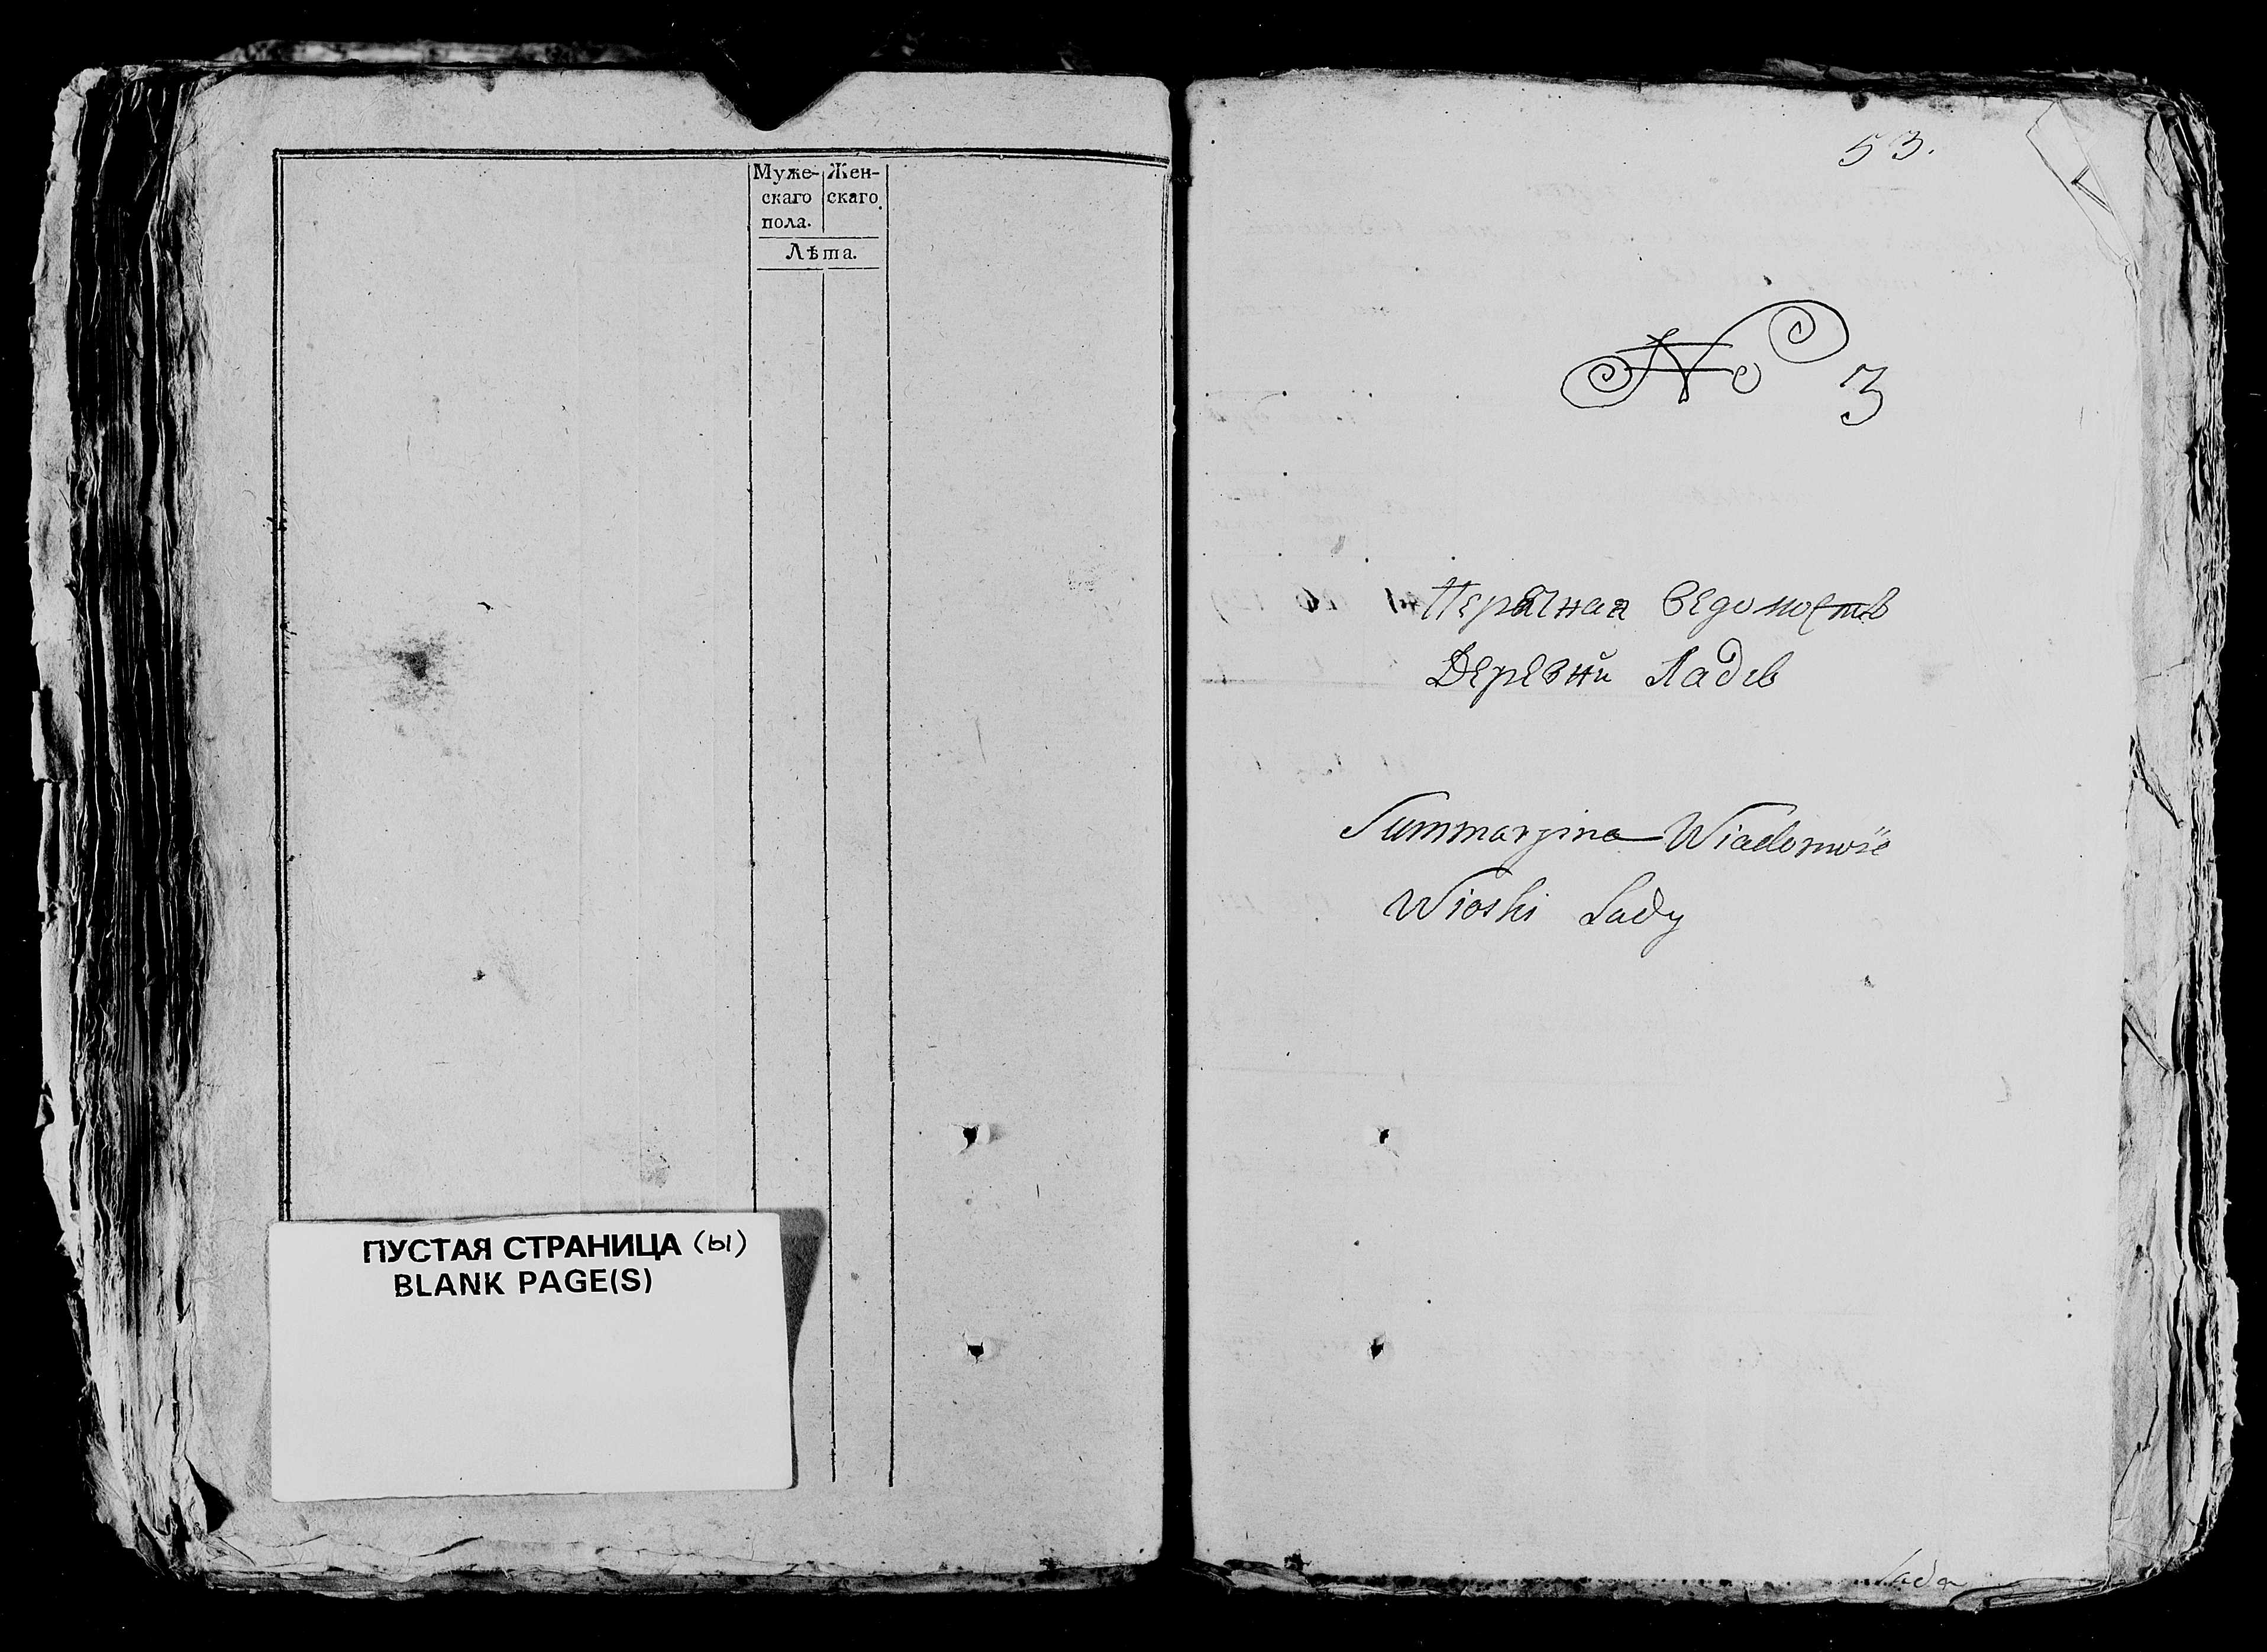 Муже- Жен-
скаго скаго.
пола.
Лѣта.
ПУСТАЯ СТРАНИЦА (ы)
BLANK PAGE(S)
53.
No 3
Перечная ведомость
Деревни Ладъ
Summaryina Wiadomość
Wioski Lady
Lada